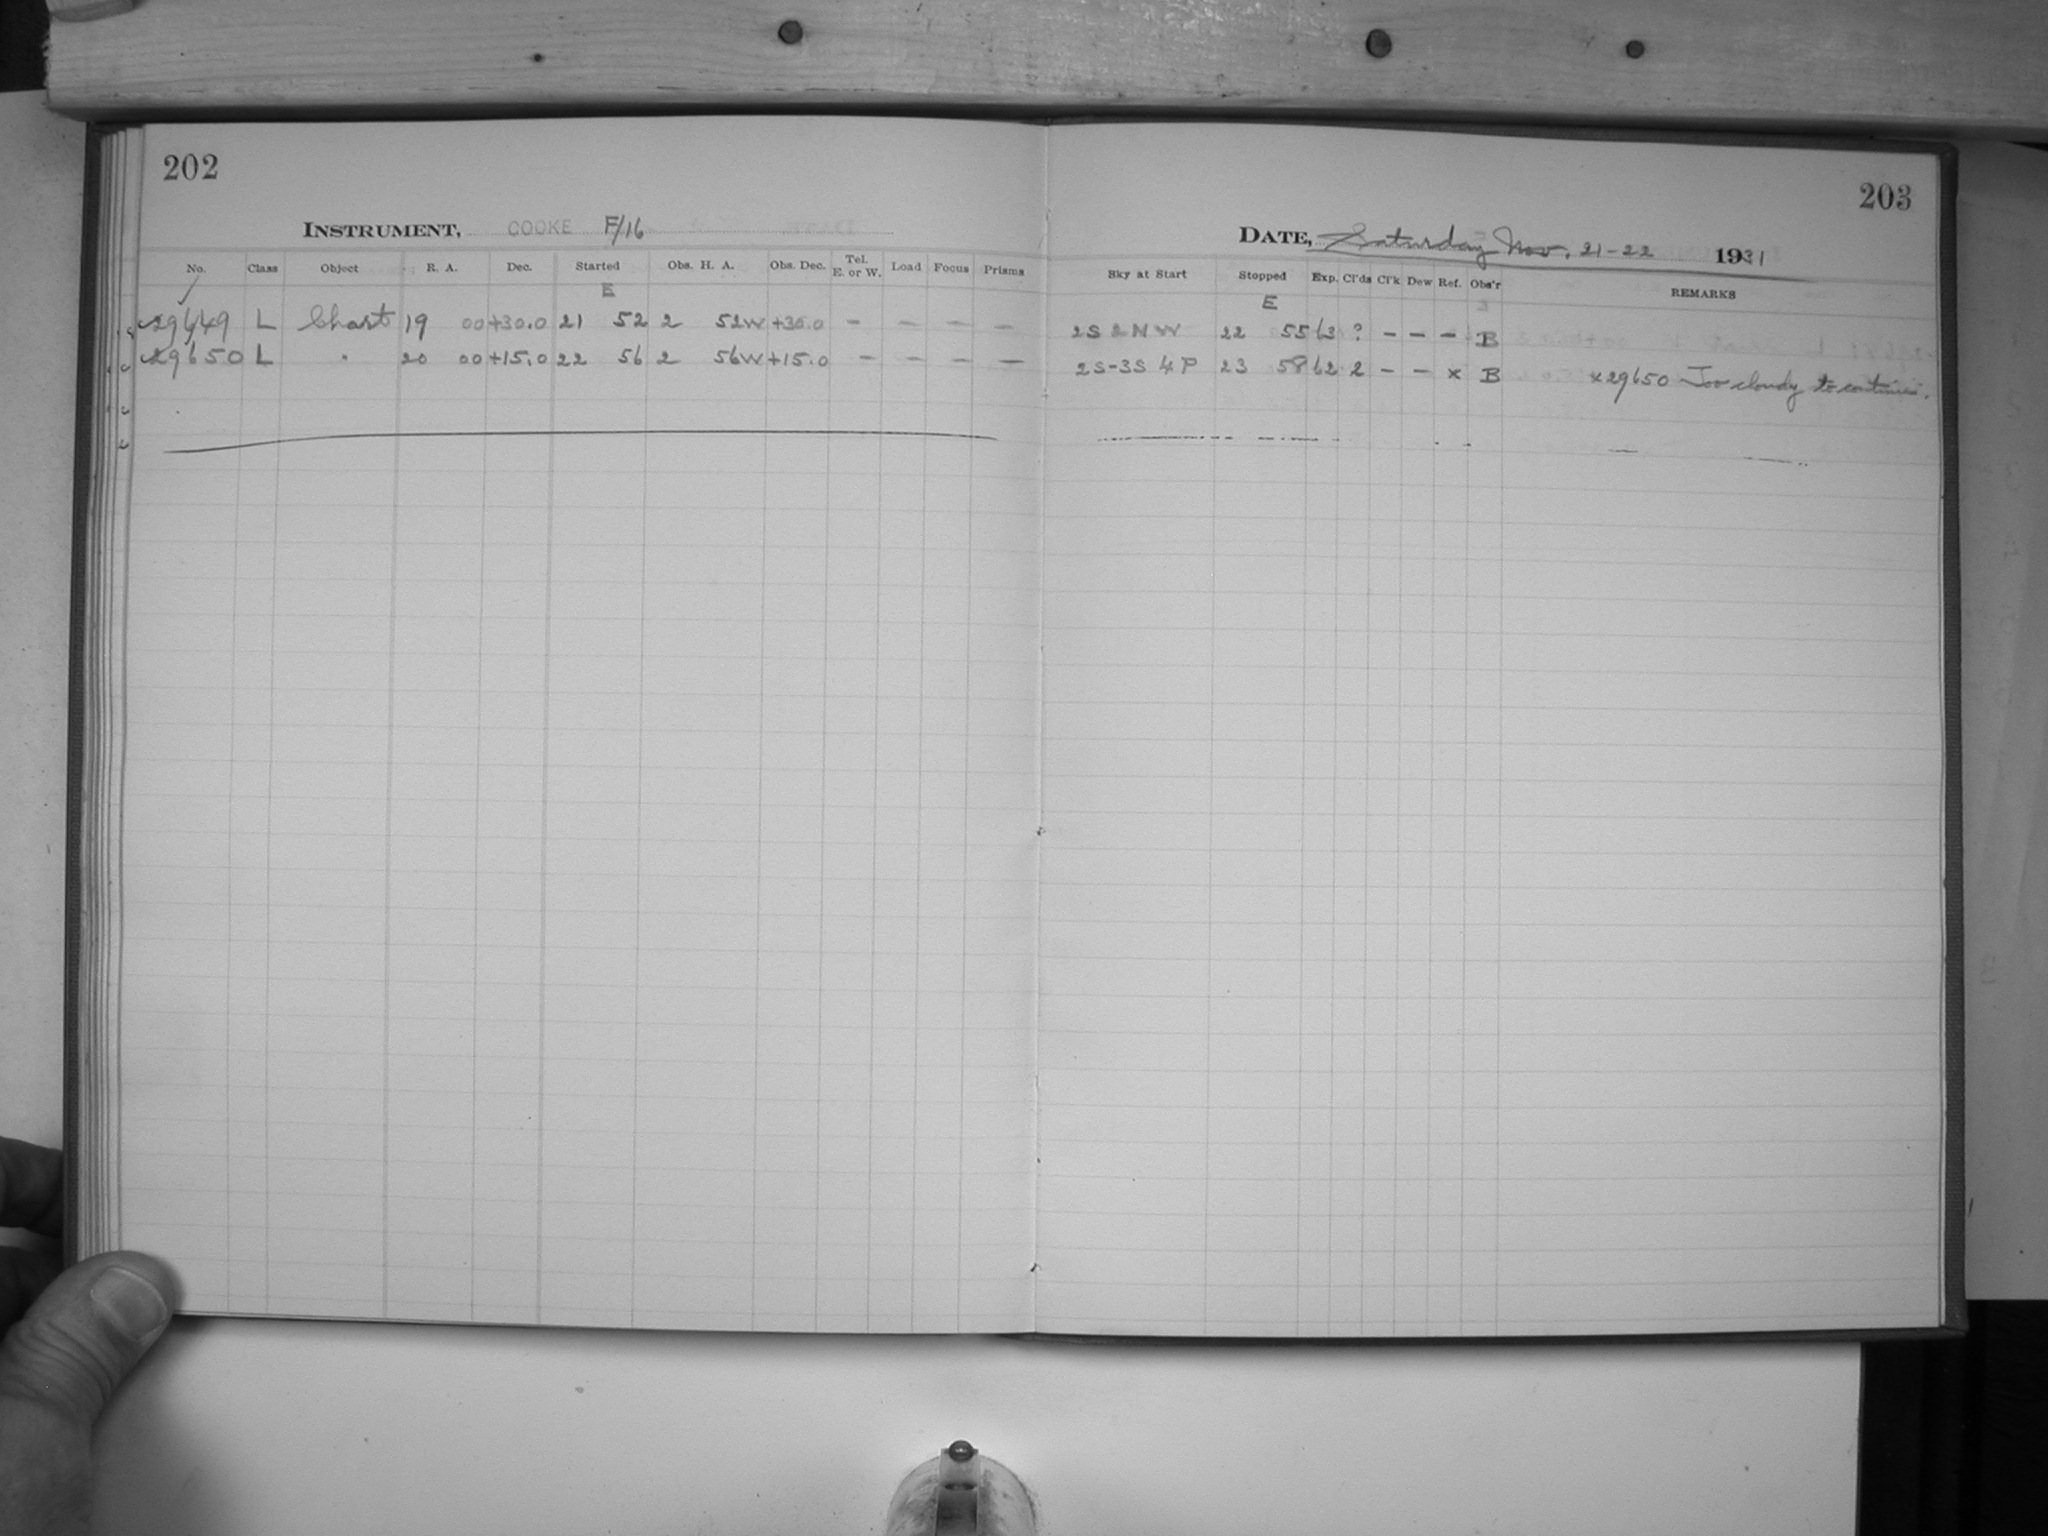 202
203
INSTRUMENT, COOKE F/16
DATE, Saturday Nov. 21-22 1931
No. Class Object R. A. Dec. Started Obs. H. A. Obs. Dec. Tel. E. or W. Load Focus Prisms Sky at Start Stopped Exp. Cl'ds Cl'k Dew Ref. Obs'r REMARKS
E E
29649 L Chart 19 00 +30.0 21 52 2 52W +30.0 – – – – 2S 2NW 22 55 63 ? – – – B
29650 L " 20 00 +15.0 22 56 2 56W +15.0 – – – – 2S-3S 4P 23 58 62 2 – – x B x29650 Too cloudy to continue.